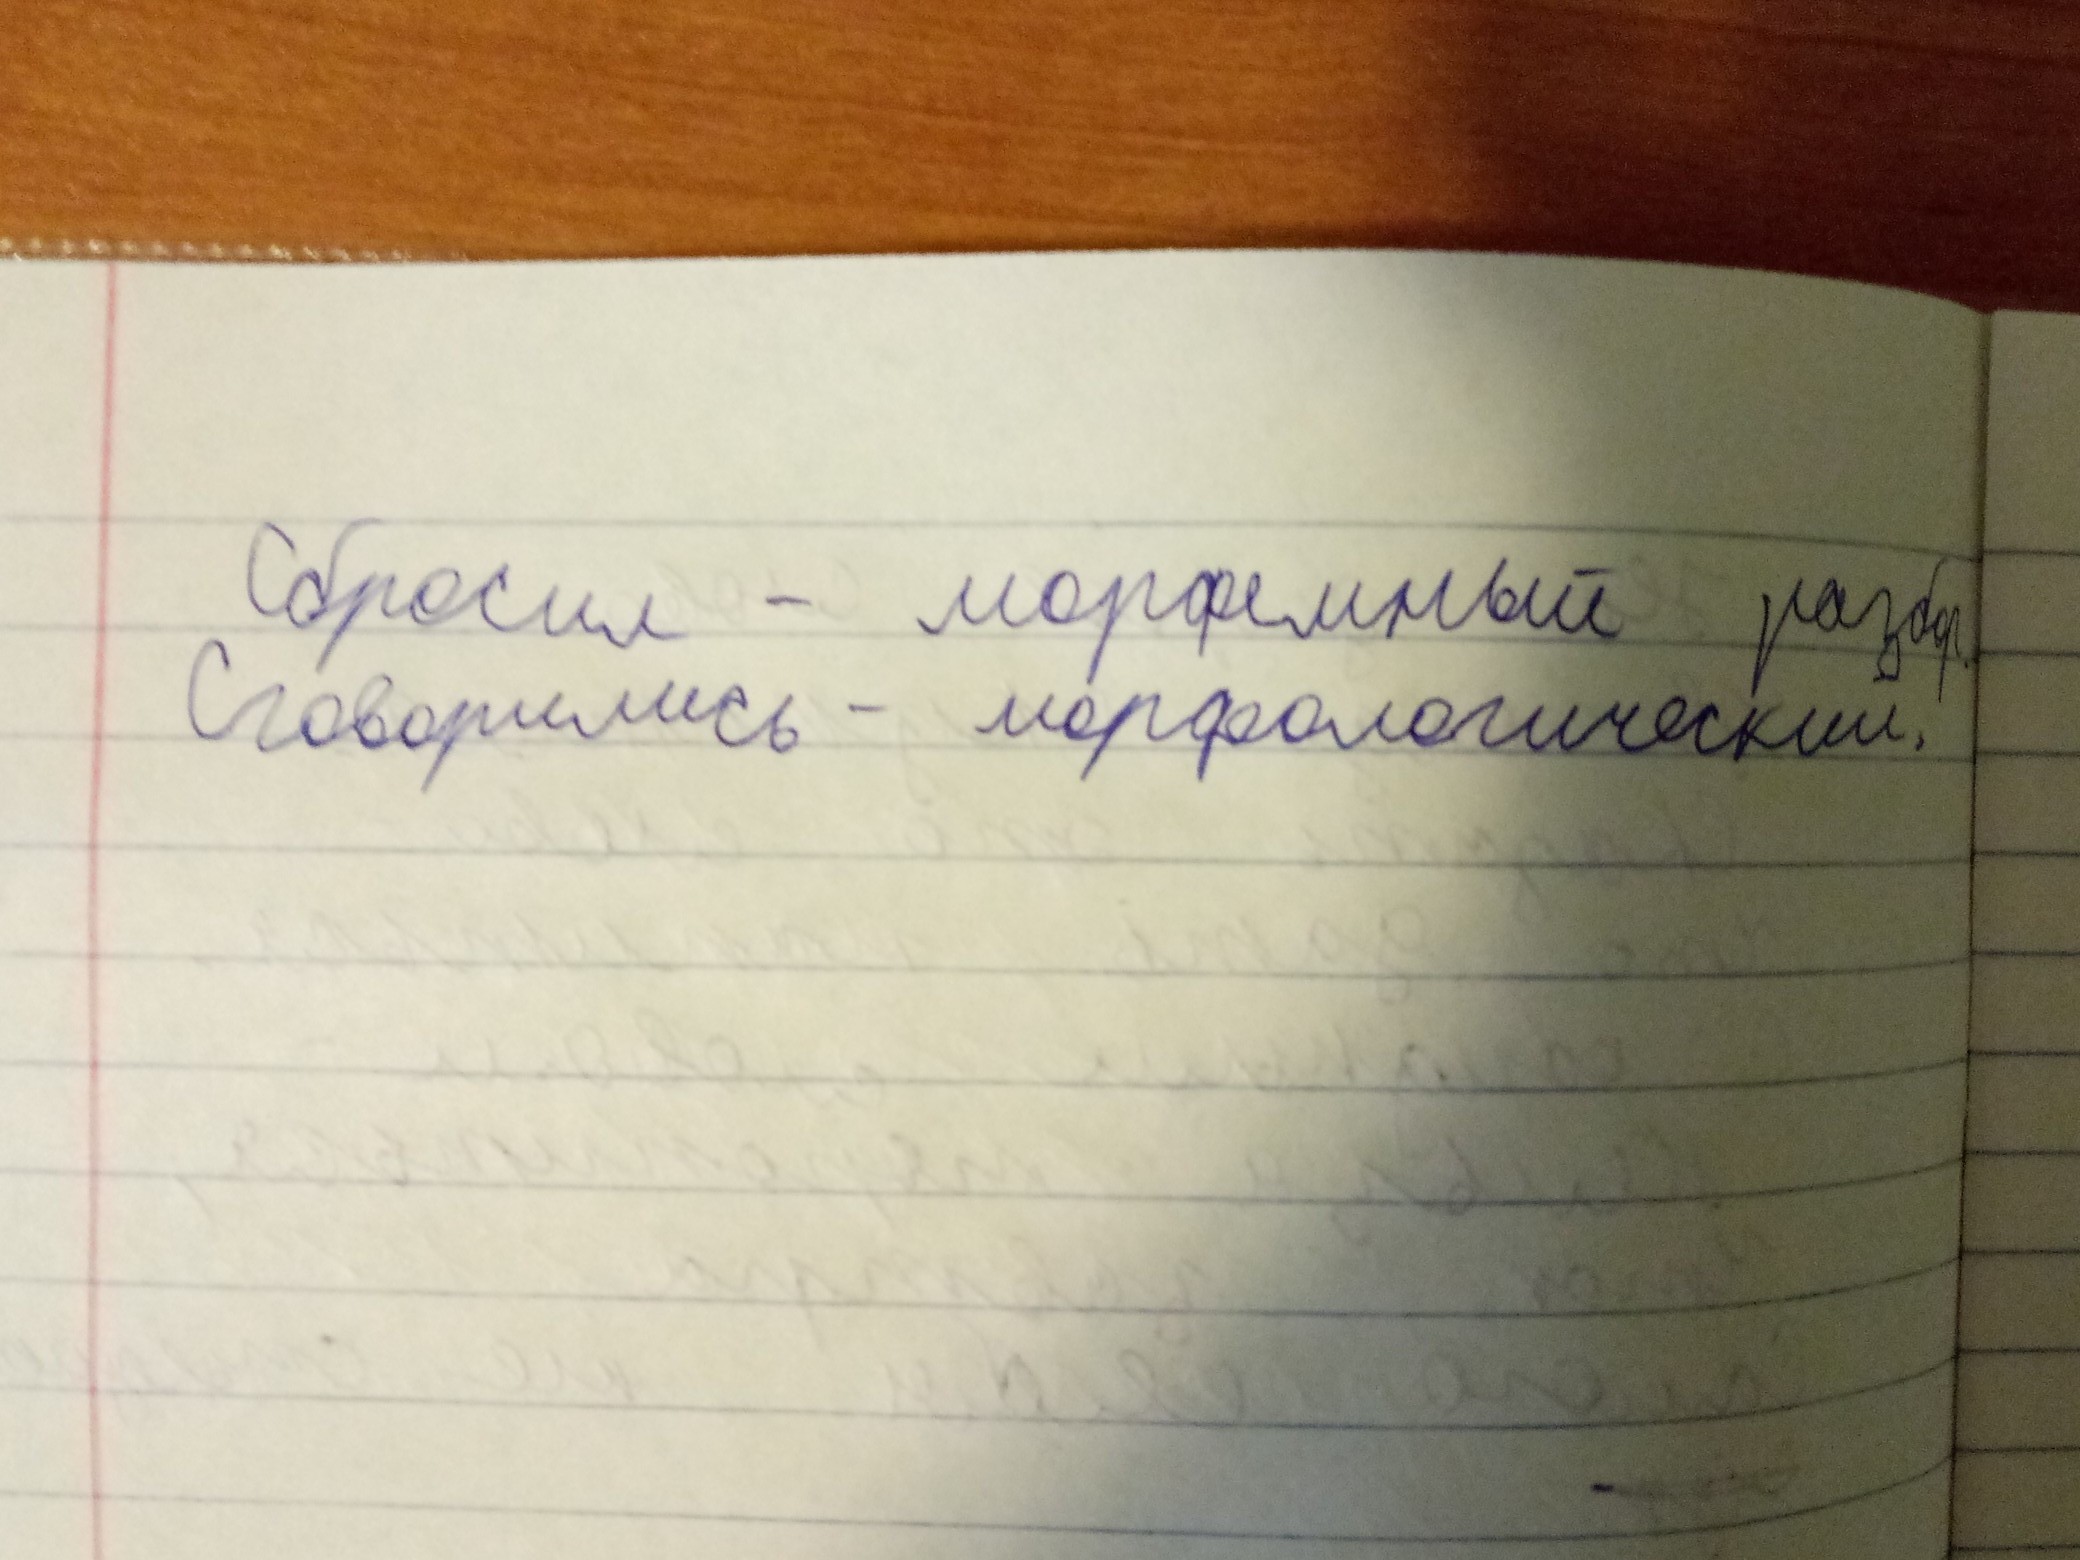 Сбросил - морфемный разбор.
Сговорились - морфологический.